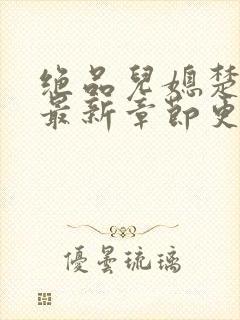 绝品兒媳楚
最新章節更
優曇琉璃